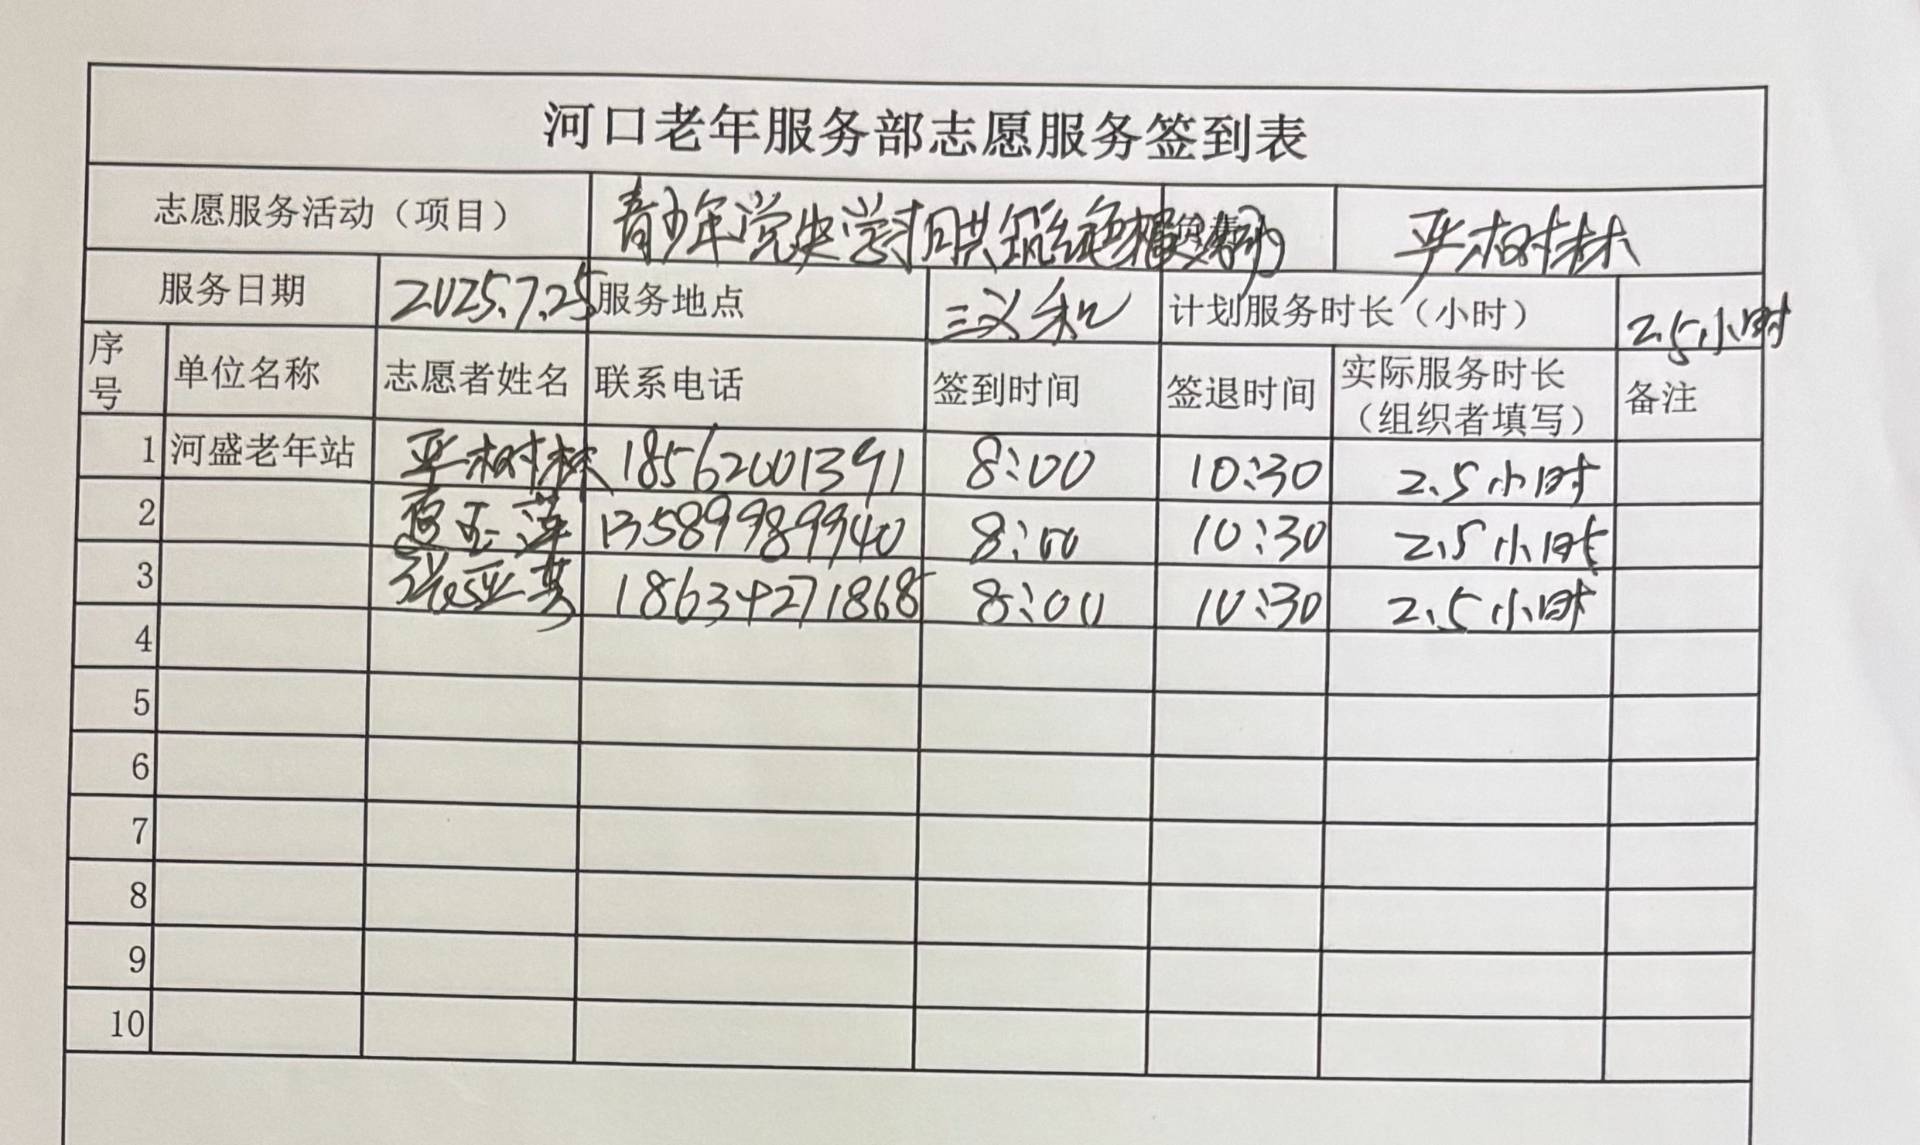 河口老年服务部志愿服务签到表
志愿服务活动（项目） 青少年党史学习共筑红色 负责 平树林
服务日期 2025.7.25 服务地点 三义和 计划服务时长（小时） 2.5小时
序号 单位名称 志愿者姓名 联系电话 签到时间 签退时间 实际服务时长（组织者填写） 备注
1 河盛老年站 平树林 18562001391 8:00 10:30 2.5小时
2 玉萍 13589989940 8:00 10:30 2.5小时
3 张亚芬 18634271868 8:00 10:30 2.5小时
4
5
6
7
8
9
10